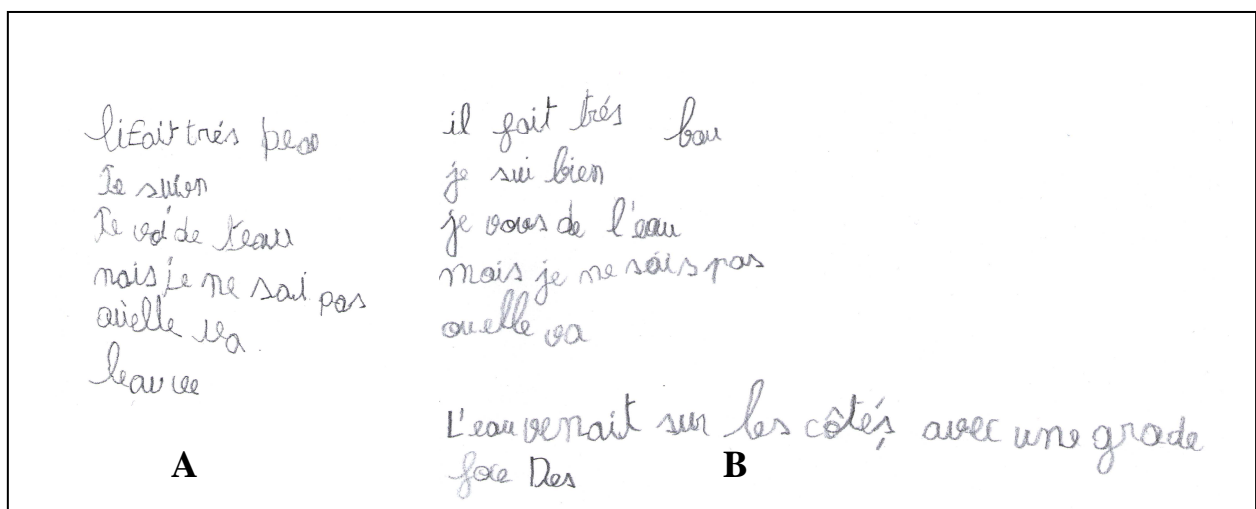 lifait trés peau
Je suien
Je vd' de l'eau
mais je ne sai pas
ouielle va
leau ve
A
il fait trés bau
je sui bien
je vous de l'eau
mais je ne sais pas
ou elle va
L'eau venait sur les côtés, avec une grade
foce Des
B